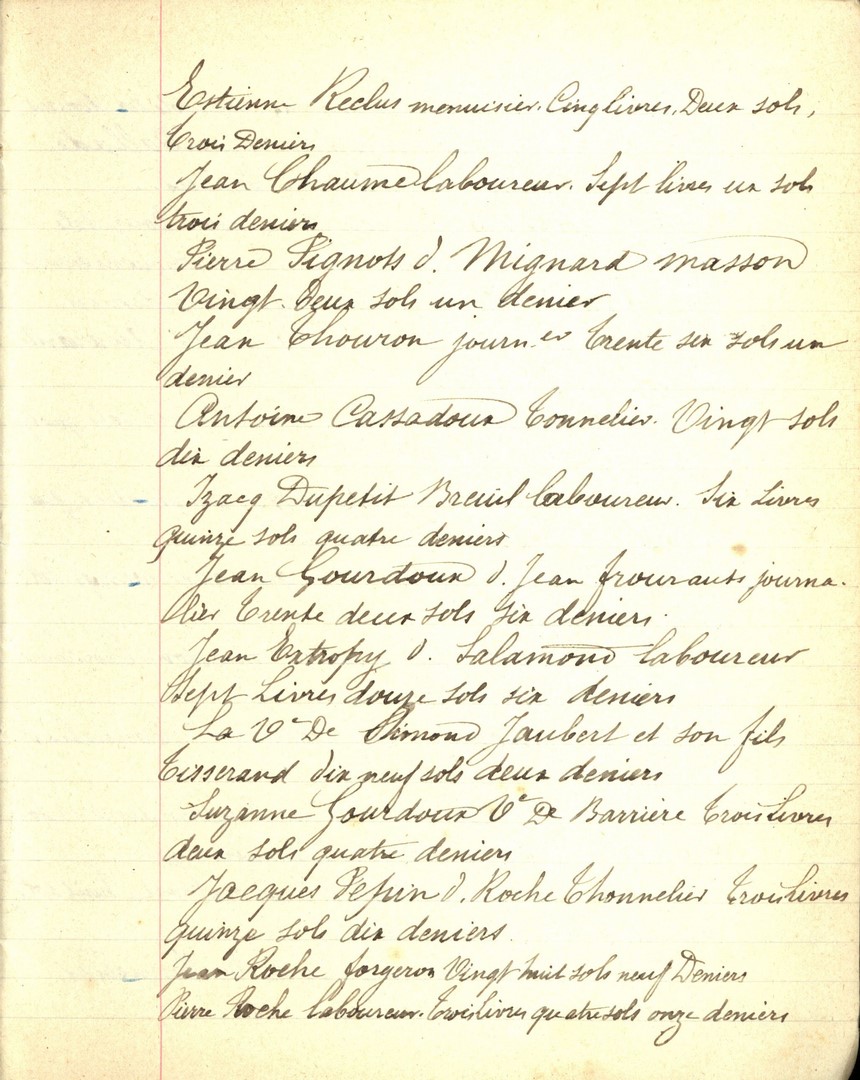 Estienne Reclus menuisier. Cinq livres, Deux sols,
trois Deniers
Jean Chaume laboureur. Sept livres un sols
trois deniers
Pierre Pignots d. Mignard masson
Vingt. Deux sols un denier
Jean Chouron journ.er trente six sols un
denier
Antoine Cassadoux tonnelier. Vingt sols
dix deniers
Izacq Dupetit Breuil laboureur. Six Livres
quinze sols quatre deniers
Jean Gourdoux d. Jean frourauts journa.
lier trente deux sols six deniers.
Jean Extropy d. Salamond laboureur
Sept Livres douze sols six deniers
La Ve De Simond Jaubert et son fils
tisserand dix neuf sols deux deniers
Suzanne Gourdoux Ve De Barrière trois Livres
deux sols quatre deniers
Jacques Pepin d. Roche thonnelier trois livres
quinze sols dix deniers.
Jean Roche forgeron Vingt huit sols neuf Deniers
Pierre Roche laboureur. trois livres quatre sols onze deniers